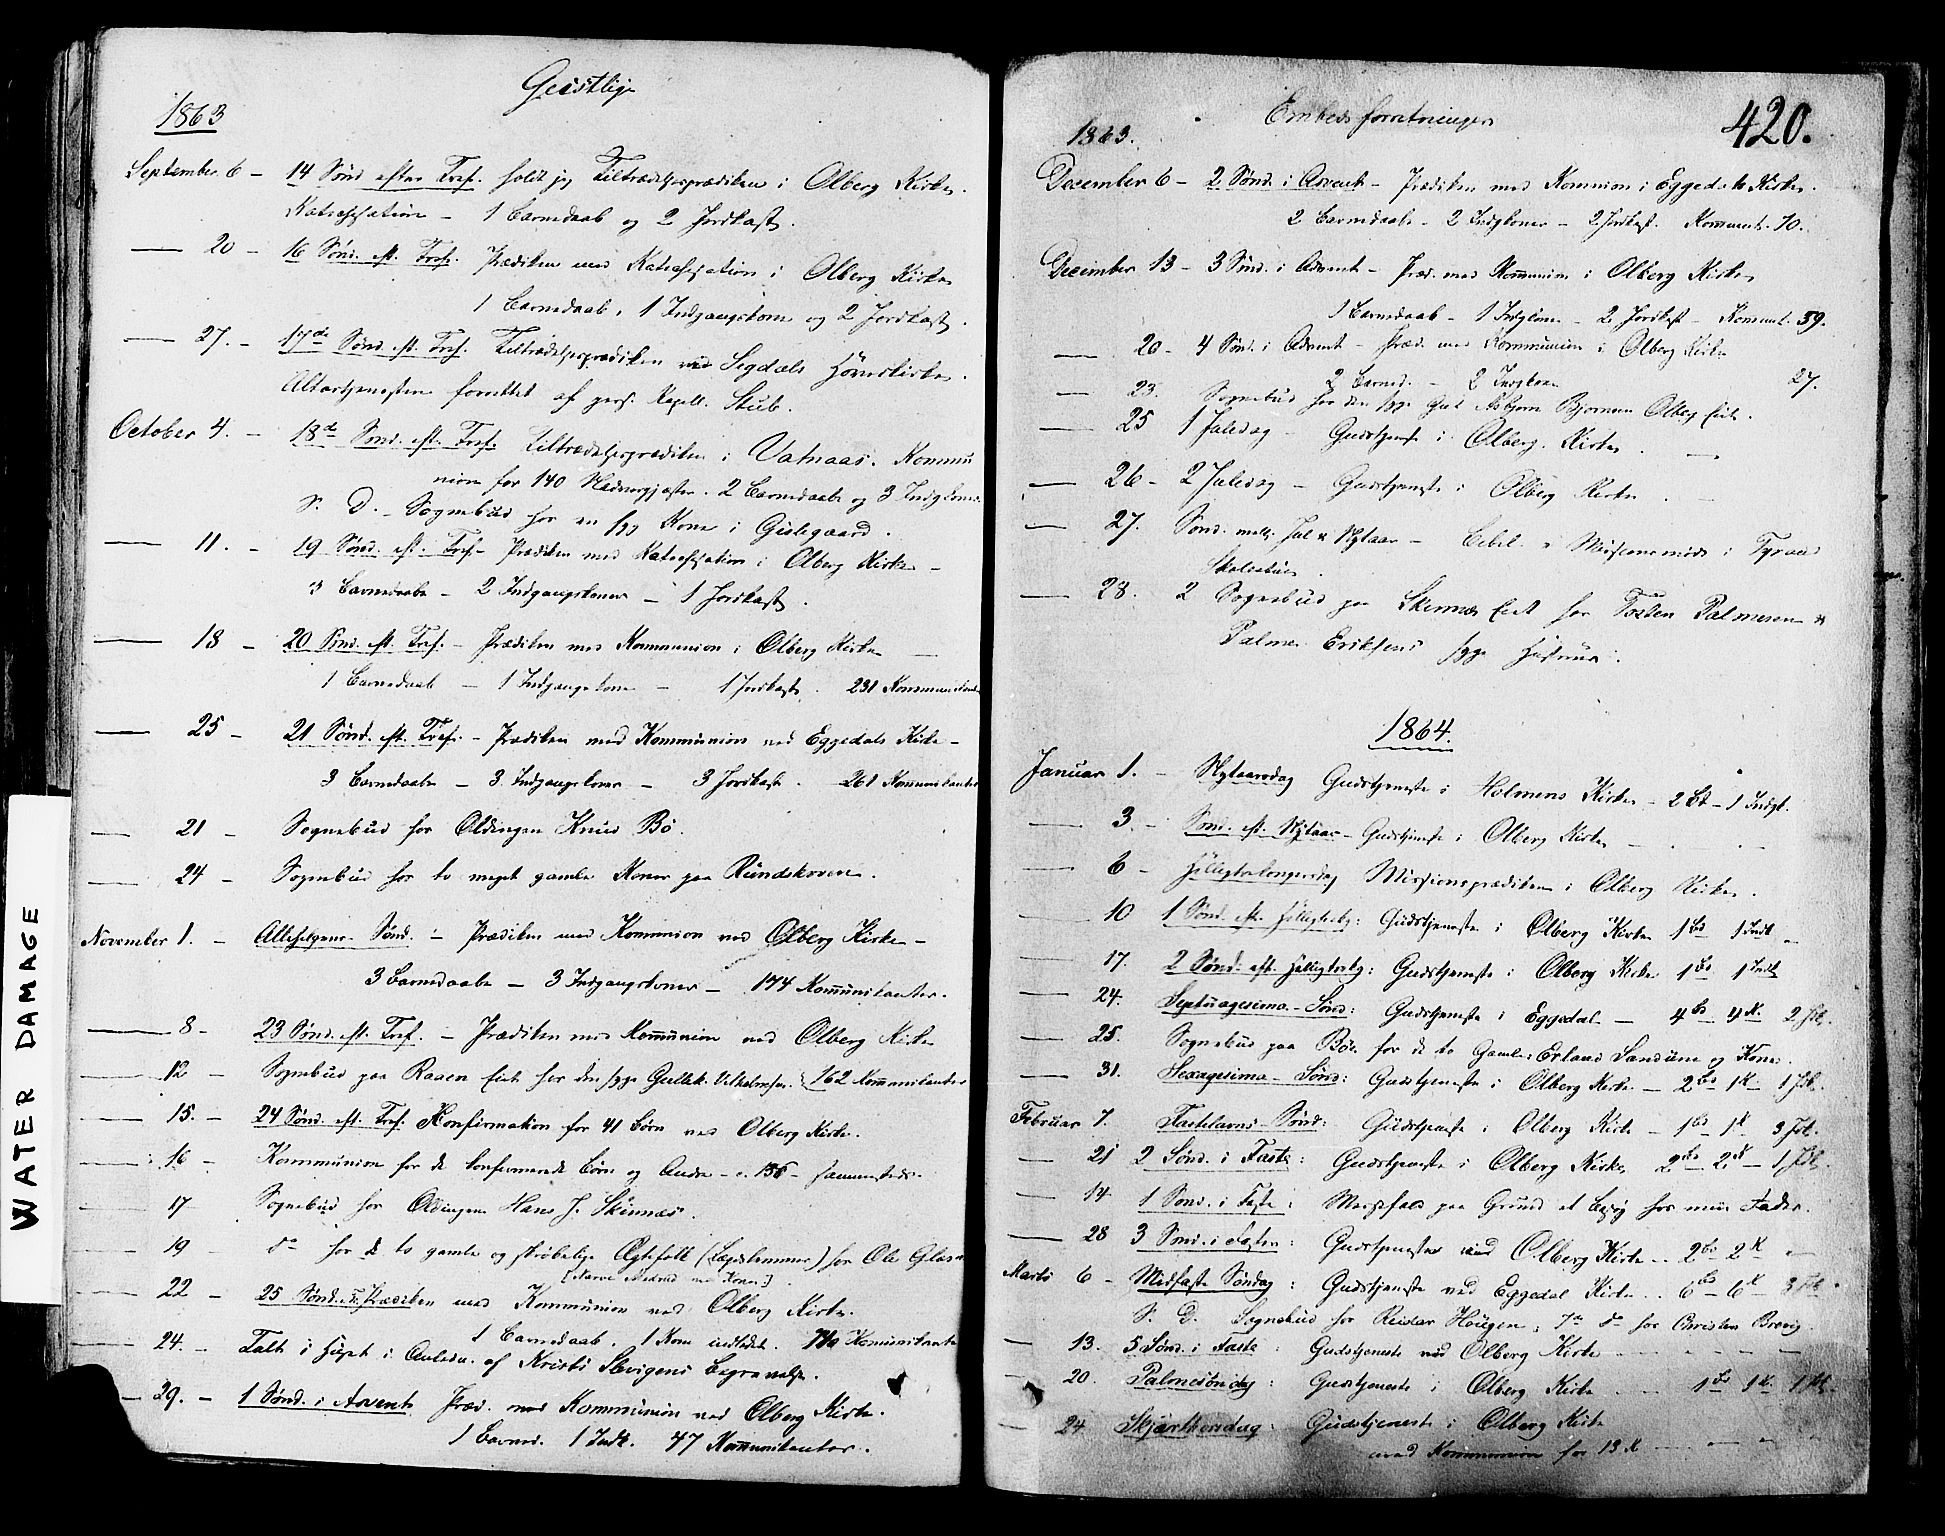 Geistlige
1863
September 6 – 14 Sønd efter Tref. holdt jeg Tiltrædelsesprædiken i Olberg Kirke.
Katechisation – 1 Barnedaab og 2 Jordkast.
— 20 – 16 Sønd. eft. Tref. Prædiken med Katechisation i Olberg Kirke
1 Barnedaab, 1 Indgangskone og 2 Jordkast.
— 27. – 17de Sønd. eft. Tref. Tiltrædelsesprædiken ved Segdals Hovedkirke.
Altertjenesten forrettet af pers. Kapell. Stub.
October 4. – 18de Sønd. eft. Tref. Tiltrædelsesprædiken i Vatnaas. Kommu
nion for 140 Nadvergjæster. 2 Barnedaabe og 3 Indgkoner
S. D. – Sognebud for en syg Kone i Gislegaard.
— 11. – 19 Sønd. eft. Tref – Prædiken med Katechisation i Olberg Kirke –
3 Barnedaabe – 2 Indgangskoner – 1 Jordkast.
— 18 – 20 Sønd. eft. Tref. – Prædiken med Kommunion i Olberg Kirke
1 Barnedaab – 1 Indgangskone – 1 Jordkast. 231 Kommunikanter
— 25 – 21 Sønd. eft. Tref. – Prædiken med Kommunion ved Eggedals Kirke –
3 Barnedaabe – 3 Indgangskoner – 3 Jordkast. 261 Kommunikanter
— 21 – Sognebud for Oldingen Knud Bö.
— 24 – Sognebud for to meget gamle Koner paa Rundskoven.
November 1. – Allehelgens Sønd. – Prædiken med Kommunion ved Olberg Kirke –
3 Barnedaabe – 3 Indgangskoner – 174 Kommunikanter.
— 8 – 23 Sønd. eft. Tref. – Prædiken med Kommunion ved Olberg Kirke
— 12 – Sognebud paa Raaen Eiet for den syge Gullek Vilhelmsen. 162 Kommunikanter
— 15. – 24 Sønd. eft. Tref. Konfirmation for 41 Børn ved Olberg Kirke.
— 16 – Kommunion for de konfirmerede Børn og Andre – c. 156 – sammesteds.
— 17 Sognebud for Oldingen Hans J. Skinnæs.
— 19 do for de to gamle og skrøbelige Ægtefolk (Lægdslemmer) for Ole Glas
— 22 – 25 Sønd. e. T. Prædiken med Kommunion ved Olberg Kirke.
1 Barnedaab. 1 Kone indledet. Kommunikanter
— 24. – Talt i Huset i Anledn. af Begravelse.
— 29. – 1 Sønd. i Advent. Præd. med Kommunion ved Olberg Kirke.
1 Barned. 1 Indl. 47 Kommunikanter.
Embedsforretninger
420.
1863.
December 6 – 2 Sønd. i Advent – Prædiken med Komunion i Eggedals Kirke.
2 Barnedaabe – 2 Indgkoner – 2 Jordkast. Kommunt. 70.
December 13 – 3 Sønd. i Advent – Præd. med Kommunion i Olberg Kirke
1 Barnedaab – 1 Indgkone – 2 Jordkast – Kommunt. 59.
— 20 – 4 Sønd. i Advent – Præd. med Kommunion i Olberg Kirke
2 Barned. – 2 Indgkoner 27.
— 23. Sognebud for den syge Asbjørn Bjørnsen Olberg Eiet.
— 25 1 Juledag – Gudstjeneste i Olberg Kirke.
— 26 – 2 Juledag – Gudstjeneste i Olberg Kirke.
— 27. Sønd. mell. Jul & Nytaar – Bibel & Missionsmøde i
Skolestue.
— 28. 2 Sognebud paa Skinnæs Eiet for Torsten Palmesen &
Palme Eriksens syge Hustru.
1864.
Januar 1. – Nytaarsdag Gudstjeneste i Holmens Kirke – 2 Bd – 1 Indgt.
— 3. – Sønd. eft. Nytaar – Gudstjeneste i Olberg Kirke –
— 6 – Helligtrekongersdag Missionsprædiken i Olberg Kirke.
— 10 1 Sønd. eft. Helligtrekg: Gudstjeneste i Olberg Kirke 1 Bd 1 Indl
— 17. 2 Sønd. eft. Helligtrekg: Gudstjeneste i Olberg Kirke 1 Bd 1 Indl
— 24. Septuagesima – Sønd: Gudstjeneste i Eggedal – 4 Bd 4 K. 2 Jk.
— 25. Sognebud paa Böe for de to Gamle: Erland Sandum og Kone.
— 31. Sexagesima – Sønd: Gudstjeneste i Olberg Kirke – 2 Bd 1 K – 1 Jk.
Februar 7. Fastelavns – Sønd: Gudstjeneste i Olberg Kirke – 1 Bd 1 K 3 Jk.
— 21 2 Sønd. i Faste: Gudstjeneste i Olberg Kirke 2 Bd 2 K – 1 Jk.
— 14. 1 Sønd. i Faste: Messefald paa Grund af Besøg hos min Fader.
— 28 3 Sønd. i Fasten: Gudstjeneste ved Olberg Kirke . . 2 Bd 2 K
Marts 6 – Midfaste Søndag: Gudstjeneste ved Eggedal Kirke . . 6 Bd – 6 K 3 Jk.
S. D. Sognebud for Reidar Hougen, do for Christen Brevig.
— 13. 5 Sønd. i Faste: Gudstjeneste ved Olberg Kirke
— 20. Palmesøndag: Gudstjeneste i Olberg Kirke . . 1 Bd 1 K. 1 Jk.
— 24 Skjærthorsdag: Gudstjeneste i Olberg Kirke
med Kommunion for 13 K
WATER DAMAGE